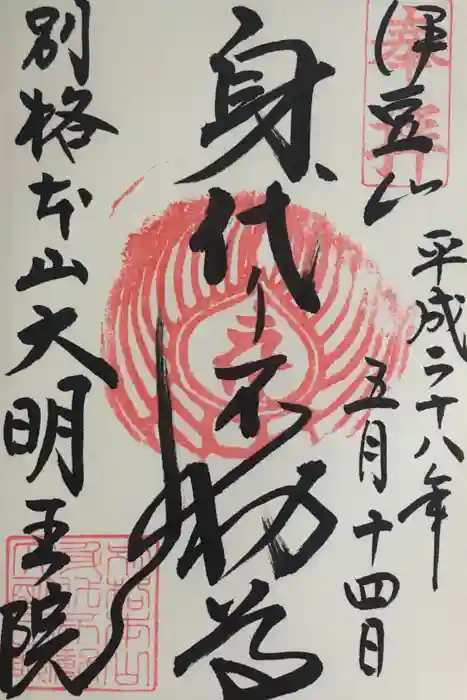 奉拝
伊豆山
平成二十八年
五月十四日
身代り不動尊
別格本山大明王院